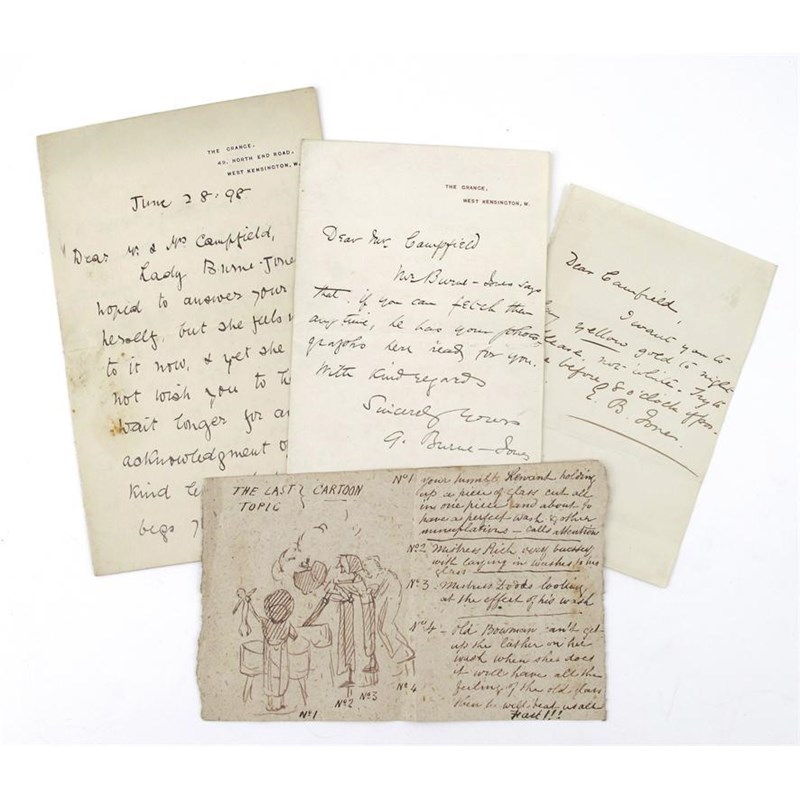 THE GRANGE,
49, NORTH END ROAD,
WEST KENSINGTON, W.
June 28. 98
Dear Mr & Mrs Campfield,
Lady Burne-Jone
hoped to answer your
herself, but she feels
to it now, & yet she
not wish you to
wait longer for an
acknowledgment of
kind
begs
THE GRANGE,
WEST KENSINGTON, W.
Dear Mr. Campfield
Mr Burne-Jones says
that if you can fetch them
any time, he has your photo-
graphs here ready for you.
With kind regards
Sincerely Yours
G. Burne-Jones
Dear Camfield,
I want you to
yellow gold to night
please, not white. Try to
before 8 o'clock
E. B. Jones.
THE LAST CARTOON
TOPIC
No 1
No 2
No 3
No 4
No 1 your humble Servant holding
up a piece of glass cut all
in one piece and about to
have a perfect wash & other
manuplations - calls attention
No 2 Mistress Rich very
with laying in washes to his
glass
No 3 Mistress looking
at the effect of his wash
No 4 - Old Bowman can't get
up the lather on his
wash when she does
it will have all the
feeling of the old glass
then he will beat us all
Fact!!!